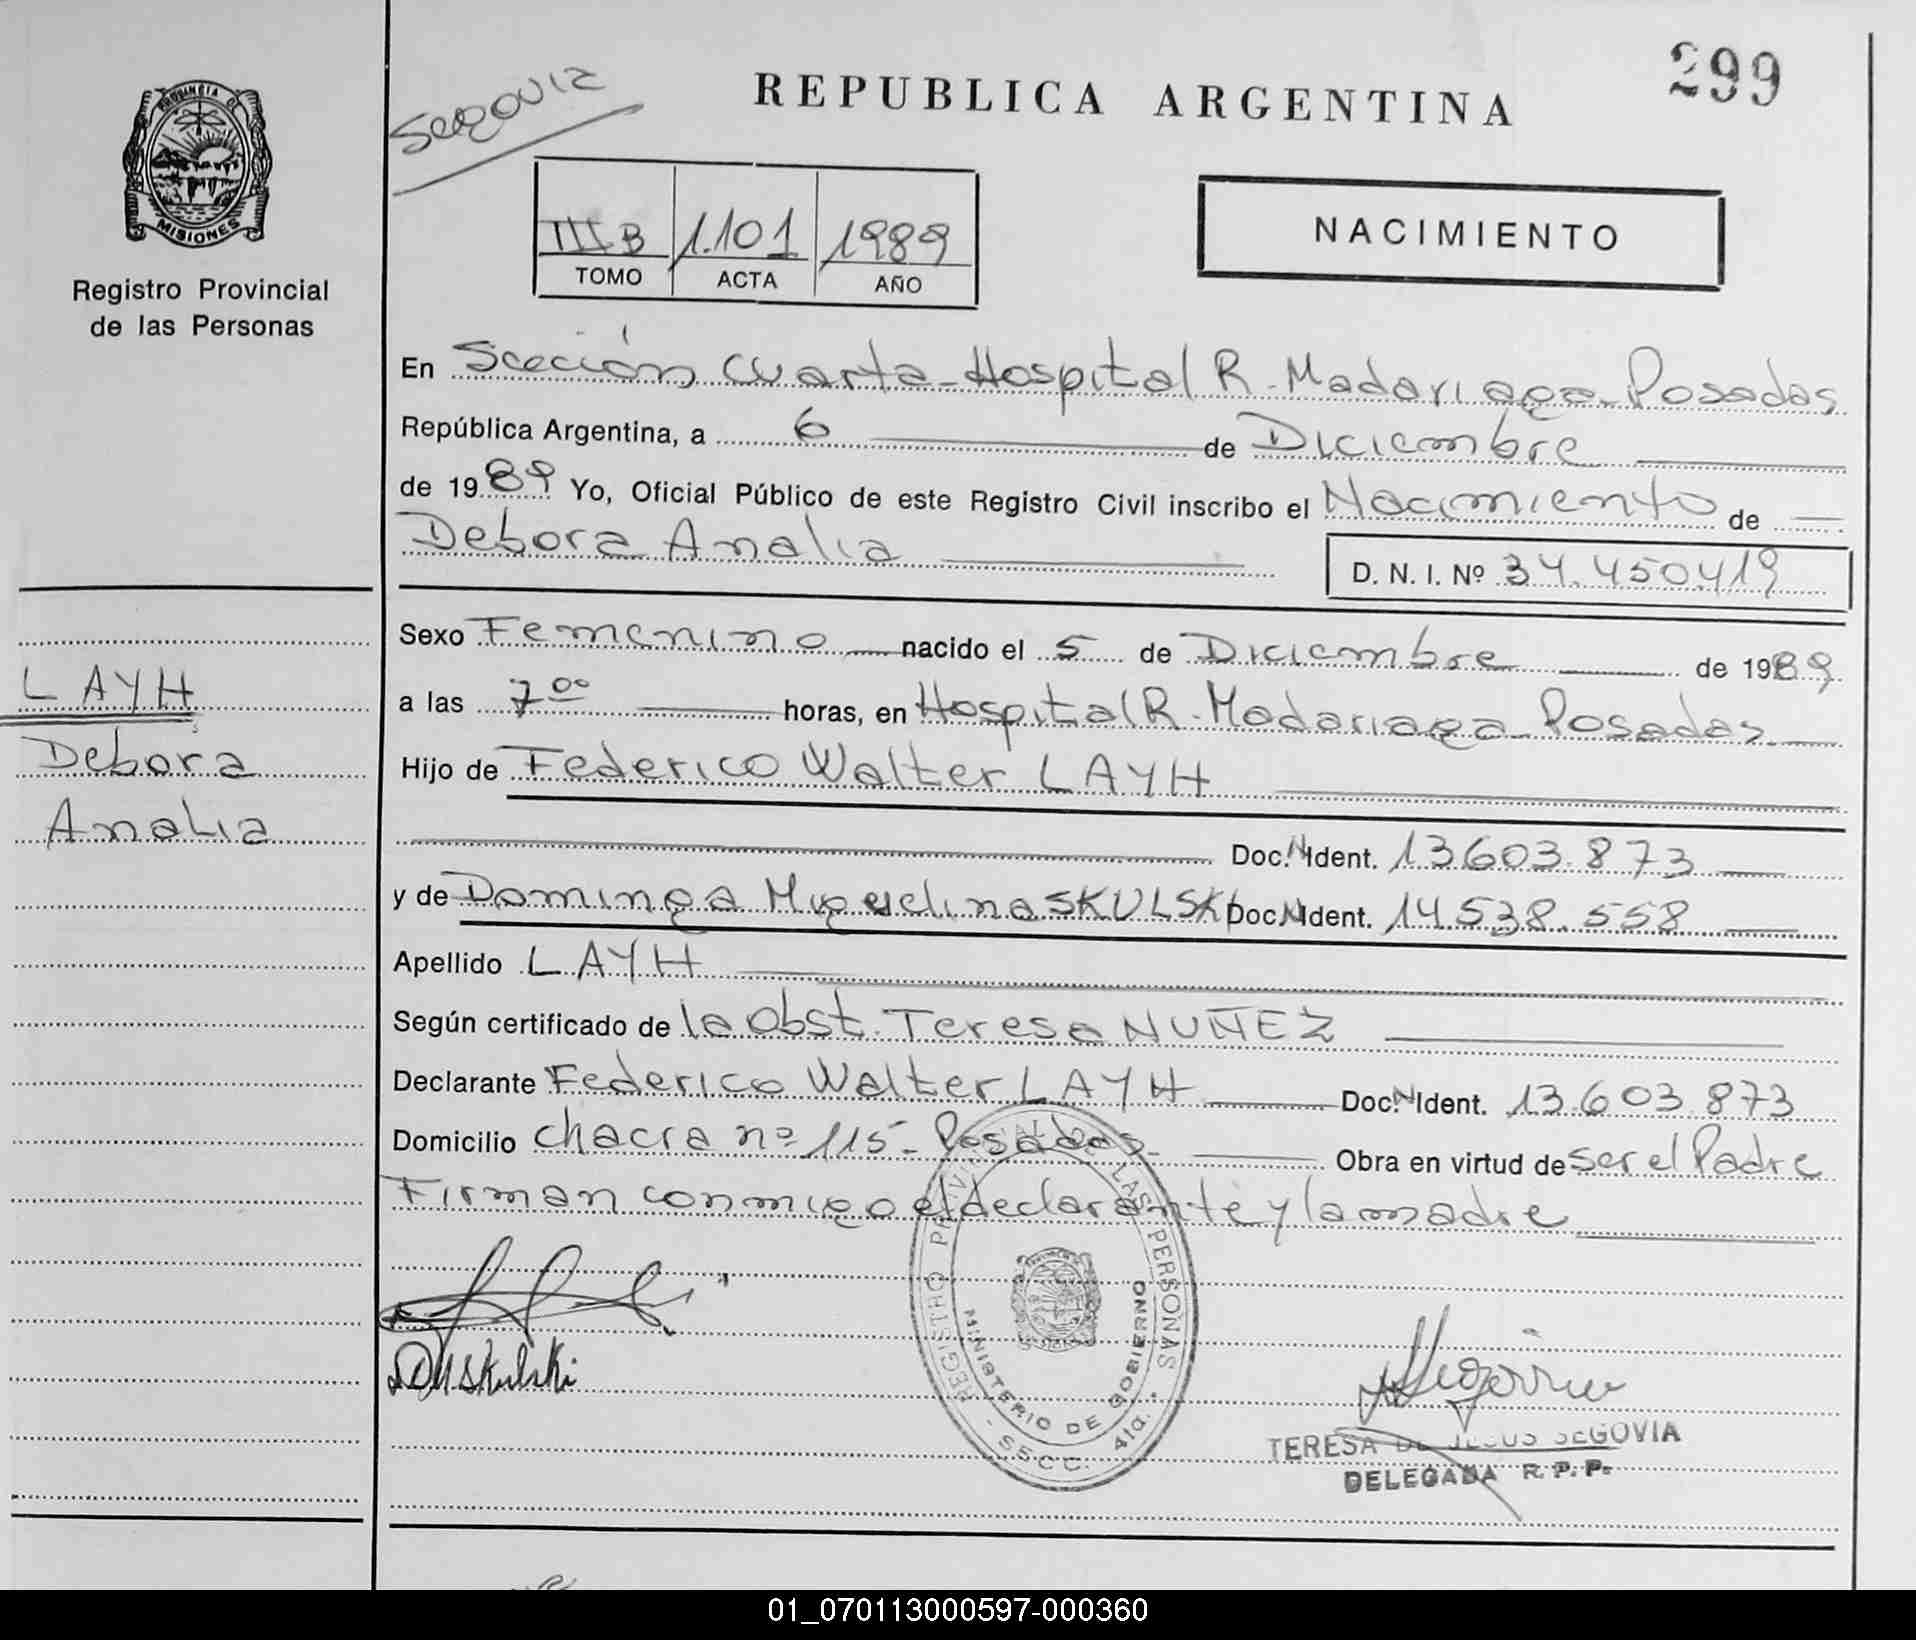 299
Segovia
REPUBLICA ARGENTINA
PROVINCIA DE
MISIONES
Registro Provincial
de las Personas
III B 1.101 1989
TOMO ACTA AÑO
NACIMIENTO
En Sección Cuarta-Hospital R. Madariaga-Posadas
República Argentina, a 6 de Diciembre
de 1989 Yo, Oficial Público de este Registro Civil inscribo el Nacimiento de
Debora Analia
D. N. I. Nº 34.450.419
Sexo Femenino nacido el 5 de Diciembre de 1989
a las 7⁰⁰ horas, en Hospital R. Madariaga-Posadas
Hijo de Federico Walter LAYH
Doc. N Ident. 13.603.873
y de Dominga Miguelina SKULSKI Doc. N Ident. 14.538.558
Apellido LAYH
Según certificado de la Obst. Teresa NUÑEZ
Declarante Federico Walter LAYH Doc. N Ident. 13.603.873
Domicilio chacra nº 115- Posadas Obra en virtud de ser el Padre
Firman conmigo el declarante y la madre
LAYH
Debora
Analia
DMSkulski
REGISTRO PROVINCIAL DE LAS PERSONAS
MINISTERIO DE GOBIERNO
SECC. 4ta.
TERESA DE JESUS SEGOVIA
DELEGADA R. P. P.
01_070113000597-000360